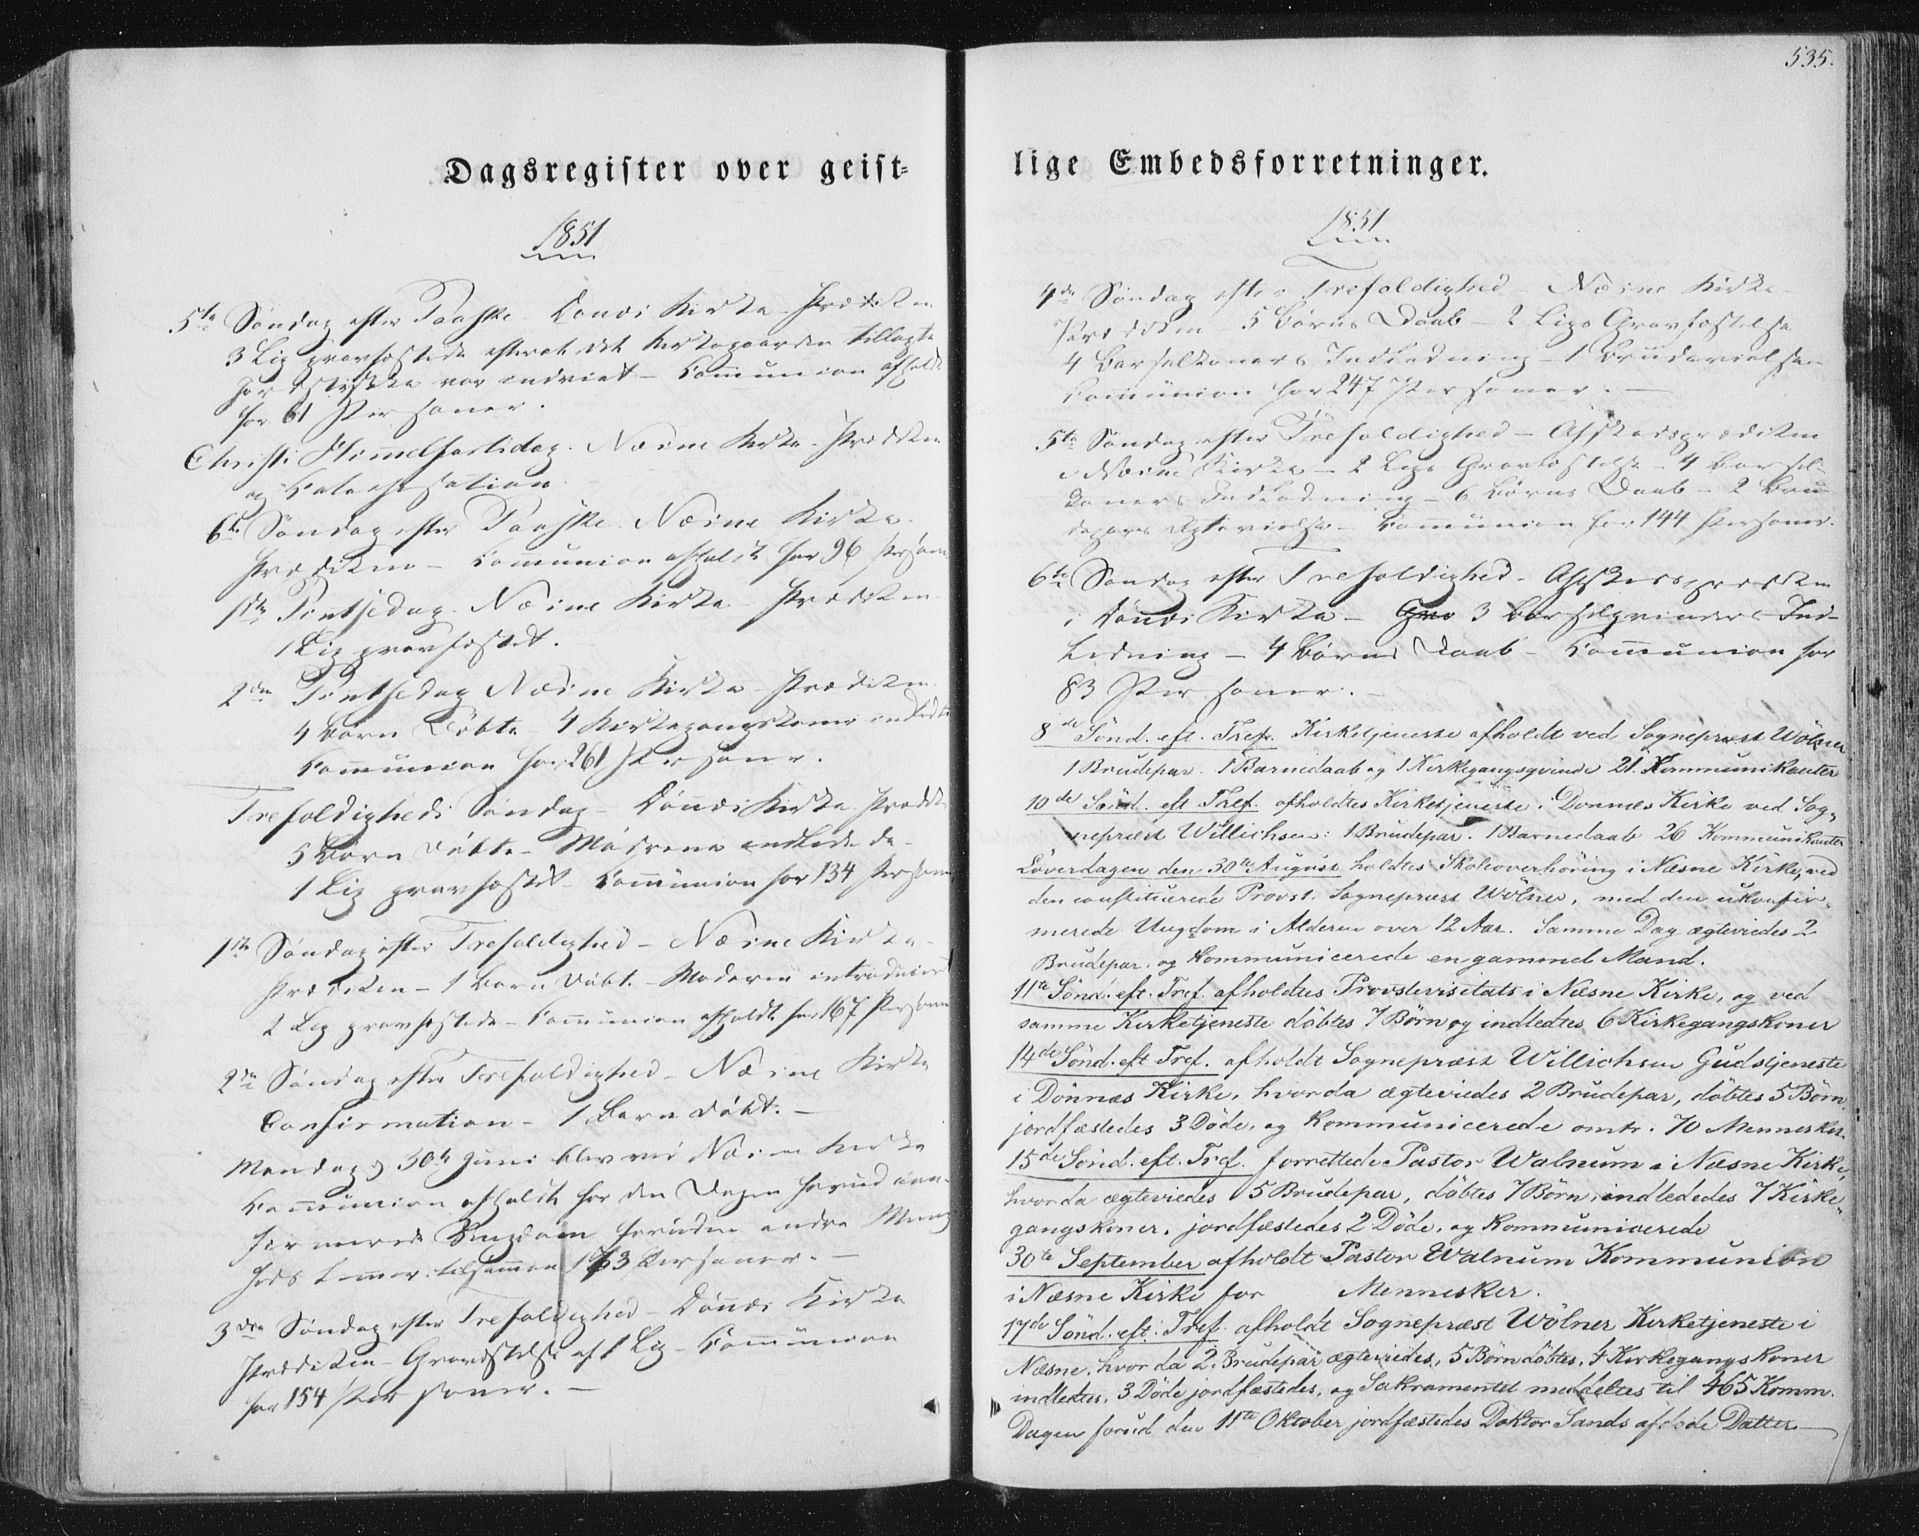 535.
Dagsregister over geist-
1851
5te Søndag efter Paaske - Dønnes Kirke - Prædiken
3 Lig gravfæstede efterat det Kirkegaarden tillagte
Jordstykke var indviet - Communion afholdt
for 61 Personer.
Christi Himmelfartsdag. Næsne Kirke - Prædiken
og Catechisation.
6te Søndag efter Paaske. Næsne Kirke.
Prædiken - Communion afholdt for 96 Person
1ste Pintsedag. Næsne Kirke - Prædiken.
1 Lig gravfæstet.
2den Pintsedag Næsne Kirke - Prædiken.
4 Børn Døbte 4 Kirkegangskoner indledte
Communion for 261 Personer.
Trefoldigheds Søndag - Dønnes Kirke Prædik
5 Børn døbte - Mødrene indledede -
1 Lig gravfæstet - Communion for 134 Person
1ste Søndag efter Trefoldighed - Næsne Kirke -
Prædiken - 1 Barn døbt. - Moderen introducer
2 Lig gravfæstede - Communion afholdt for 167 Personer
2den Søndag efter Trefoldighed - Næsne Kirke
Confirmation - 1 Barn døbt. -
Mandag d 30te Juni blev ved Næsne Kirke
Communion afholdt for den Dagen forud con-
firmerede Ungdom foruden andre Menig-
heds Lemmer tilsammen 163 Personer. -
3die Søndag efter Trefoldighed - Dønnes Kirke
Prædiken - Gravfæstelse af 1 Lig - Communion
for 154 Personer. -
lige Embedsforretninger.
1851
4de Søndag efter Trefoldighed - Næsne Kirke -
Prædiken - 5 Børns Daab - 2 Ligs Gravfæstelse
4 Barselkoners Indledning - 1 Brudevielse
Communion for 247 Personer. -
5te Søndag efter Trefoldighed - Afskedsprædiken
i Næsne Kirke - 2 Ligs Gravfæstelse - 4 Barsel-
koners Indledning - 6 Børns Daab - 2 Bru-
depars Ægtevielse - Communion for 144 Personer.
6te Søndag efter Trefoldighed - Afskedsprædiken
i Dønnes Kirke - Gra 3 Barselqvinders Ind-
ledning - 4 Børns Daab - Communion for
83 Personer. -
8de Sønd. eft. Tref. Kirketjeneste afholdt ved Sognepræst Wölner
1 Brudepar. 1 Barnedaab og 1 Kirkegangsqvinde 21. Kommunikanter
10de Sønd. eft Tref. afholdtes Kirketjeneste i Dønnæs Kirke ved Sog-
nepræst Willichsen: 1 Brudepar. 1 Barnedaab 26 Kommunikanter
Löverdagen den 30te August holdtes Skoleoverhöring i Næsne Kirke, ved
den constituerede Provst. Sognepræst Wölner, med den ukonfir-
merede Ungdom i Alderen over 12 Aar. Samme Dag ægteviedes 2
Brudepar. og Kommunicerede en gammel Mand.
11te Sönd. eft. Tref. afholdtes Provstevisitats i Næsne Kirke, og ved
samme Kirketjeneste döbtes 7 Börn og indledtes 6 Kirkegangskoner
14de Sönd. eft Tref. afholdt Sognepræst Willichsen Gudstjeneste
i Dönnæs Kirke, hvor da ægteviedes 2 Brudepar, döbtes 5 Börn,
jordfæstedes 3 Döde, og Kommunicerede omtr. 70 Mennesker.
15de Sönd. eft. Tref. forrettede Pastor Walnum i Næsne Kirke,
hvor da ægteviedes 5 Brudepar, döbtes 7 Börn, indlededes 7 Kirke-
gangskoner, jordfæstedes 2 Döde, og Kommunicerede
30te September afholdt Pastor Walnum Kommunion
i Næsne Kirke for Mennesker.
17de Sönd. eft. Tref. afholdt Sognepræst Wölner Kirketjeneste i
Næsne, hvor da 2 Brudepar ægteviedes, 5 Börn döbtes, 4 Kirkegangskoner
indledtes, 3 Döde jordfæstedes, og Sakramentet meddeltes til 465 Komm.
Dagen forud den 11te Oktober jordfæstedes Doktor Sands afdöde Datter